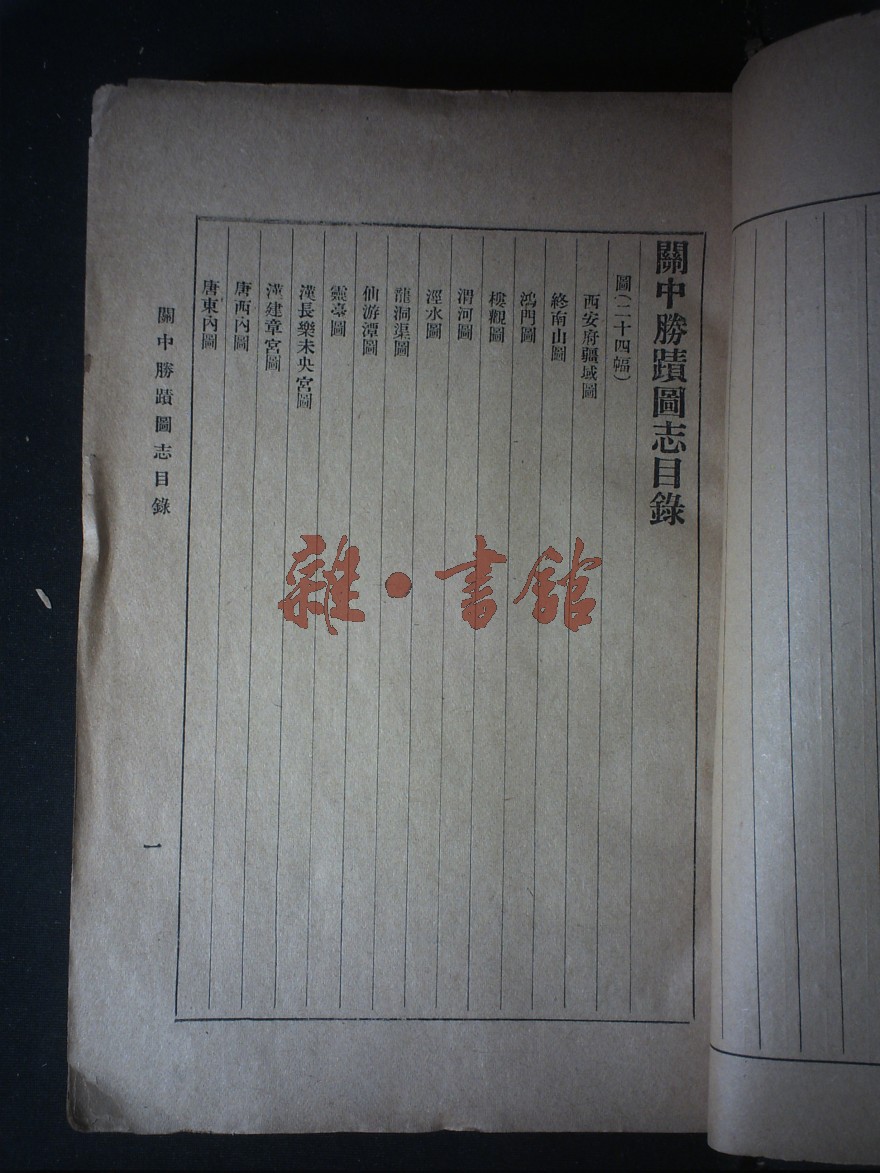 關中勝蹟圖志目錄
圖(二十四幅)
西安府疆域圖
終南山圖
鴻門圖
樓觀圖
渭河圖
涇水圖
龍洞渠圖
仙游潭圖
靈臺圖
漢長樂未央宮圖
漢建章宮圖
唐西內圖
唐東內圖
關中勝蹟圖志目錄
一
雜·書館